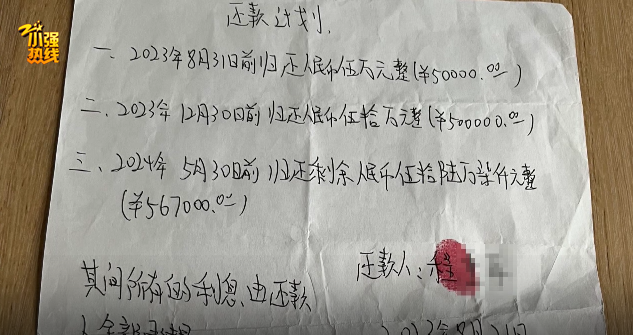 小强热线
还款计划.
一、2023年8月31日前归还人民币伍万元整(¥50000.00)
二、2023年12月30日前归还人民币伍拾万元整(¥500000.00)
三、2024年5月30日前归还剩余人民币伍拾陆万柒仟元整
(¥567000.00)
还款人:程
其间所有的利息,由还款